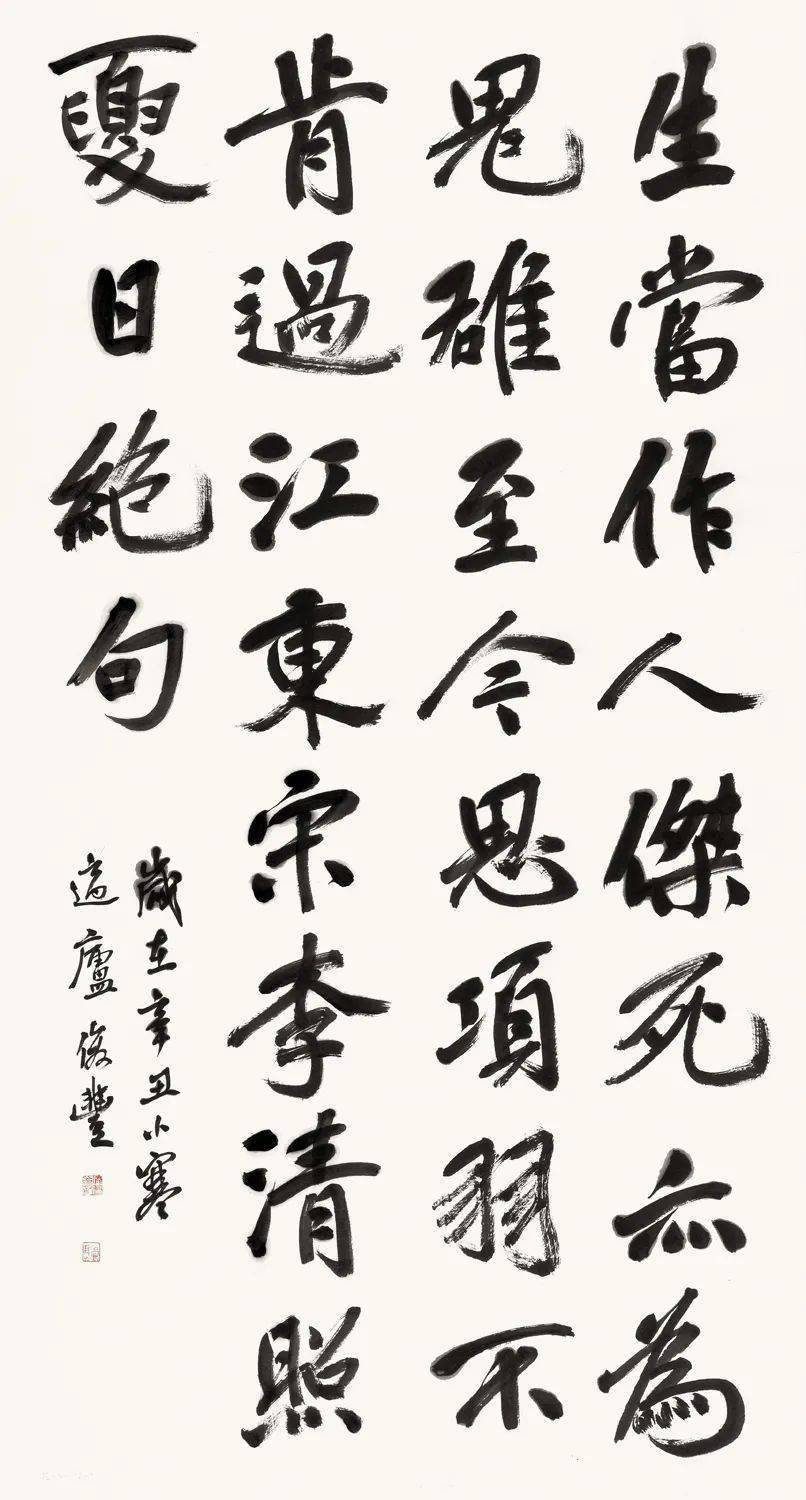 生當作人傑死亦為
鬼雄至今思項羽不
肯過江東宋李清照
夏日絕句
歲在辛丑小寒
適廬俊豐